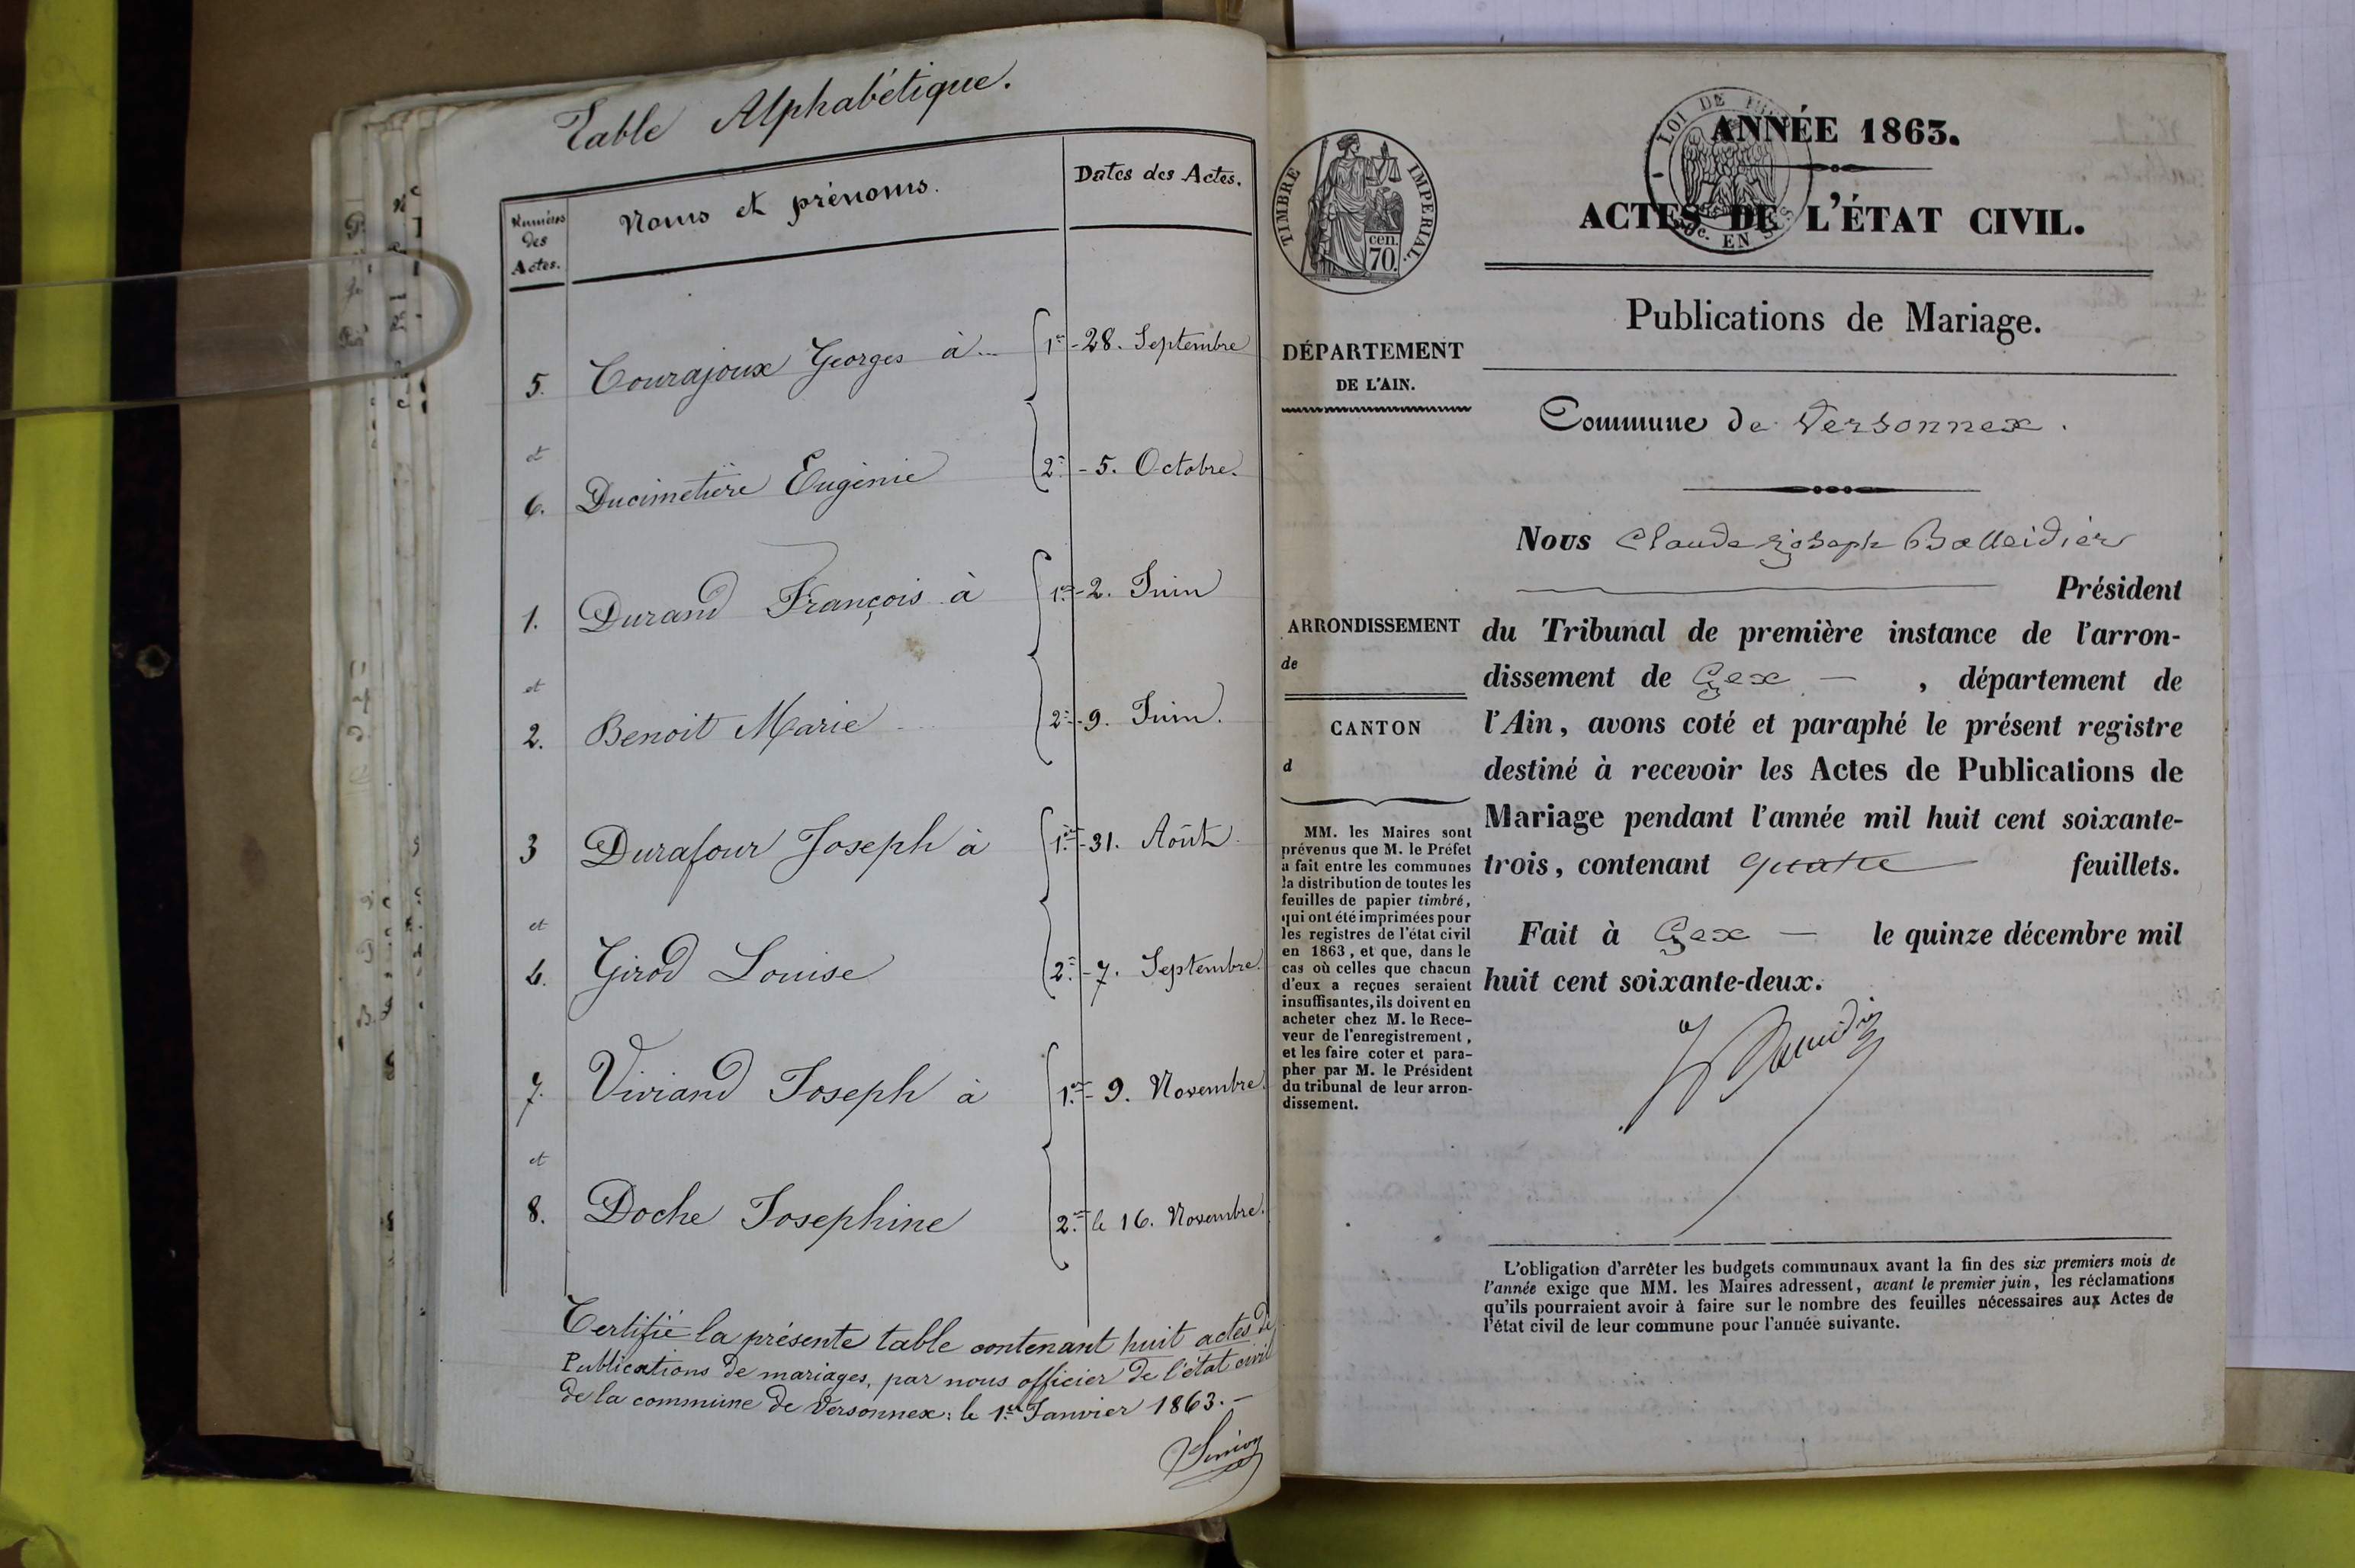 Table Alphabétique.
Numéros des Actes.
Noms et prénoms.
Dates des Actes.
5. Courajoux Georges à 1re - 28. Septembre
et
6. Ducimetière Eugénie 2e - 5. Octobre.
1. Durand François à 1re - 2. Juin
et
2. Benoit Marie 2e - 9. Juin.
3 Durafour Joseph à 1re - 31. Août.
et
4. Girod Louise 2e - 7. Septembre.
7. Viviand Joseph à 1re - 9. Novembre.
et
8. Doche Josephine 2e le 16. Novembre.
Certifié la présente table contenant huit actes de
Publications de mariages, par nous officier de l'état civil
de la commune de Versonnex: le 1er Janvier 1863. -
TIMBRE IMPERIAL.
cen.
70.
LOI DE
EN SUS
ANNÉE 1863.
ACTES DE L'ÉTAT CIVIL.
Publications de Mariage.
DÉPARTEMENT
DE L'AIN.
Commune de Versonnex.
Nous Claude Joseph Balleidier
Président
ARRONDISSEMENT
de
CANTON
d
du Tribunal de première instance de l'arron-
dissement de Gex — , département de
l'Ain, avons coté et paraphé le présent registre
destiné à recevoir les Actes de Publications de
Mariage pendant l'année mil huit cent soixante-
trois, contenant quatre feuillets.
Fait à Gex — le quinze décembre mil
huit cent soixante-deux.
MM. les Maires sont
prévenus que M. le Préfet
a fait entre les communes
la distribution de toutes les
feuilles de papier timbré,
qui ont été imprimées pour
les registres de l'état civil
en 1863, et que, dans le
cas où celles que chacun
d'eux a reçues seraient
insuffisantes, ils doivent en
acheter chez M. le Rece-
veur de l'enregistrement,
et les faire coter et para-
pher par M. le Président
du tribunal de leur arron-
dissement.
L'obligation d'arrêter les budgets communaux avant la fin des six premiers mois de
l'année exige que MM. les Maires adressent, avant le premier juin, les réclamations
qu'ils pourraient avoir à faire sur le nombre des feuilles nécessaires aux Actes de
l'état civil de leur commune pour l'année suivante.